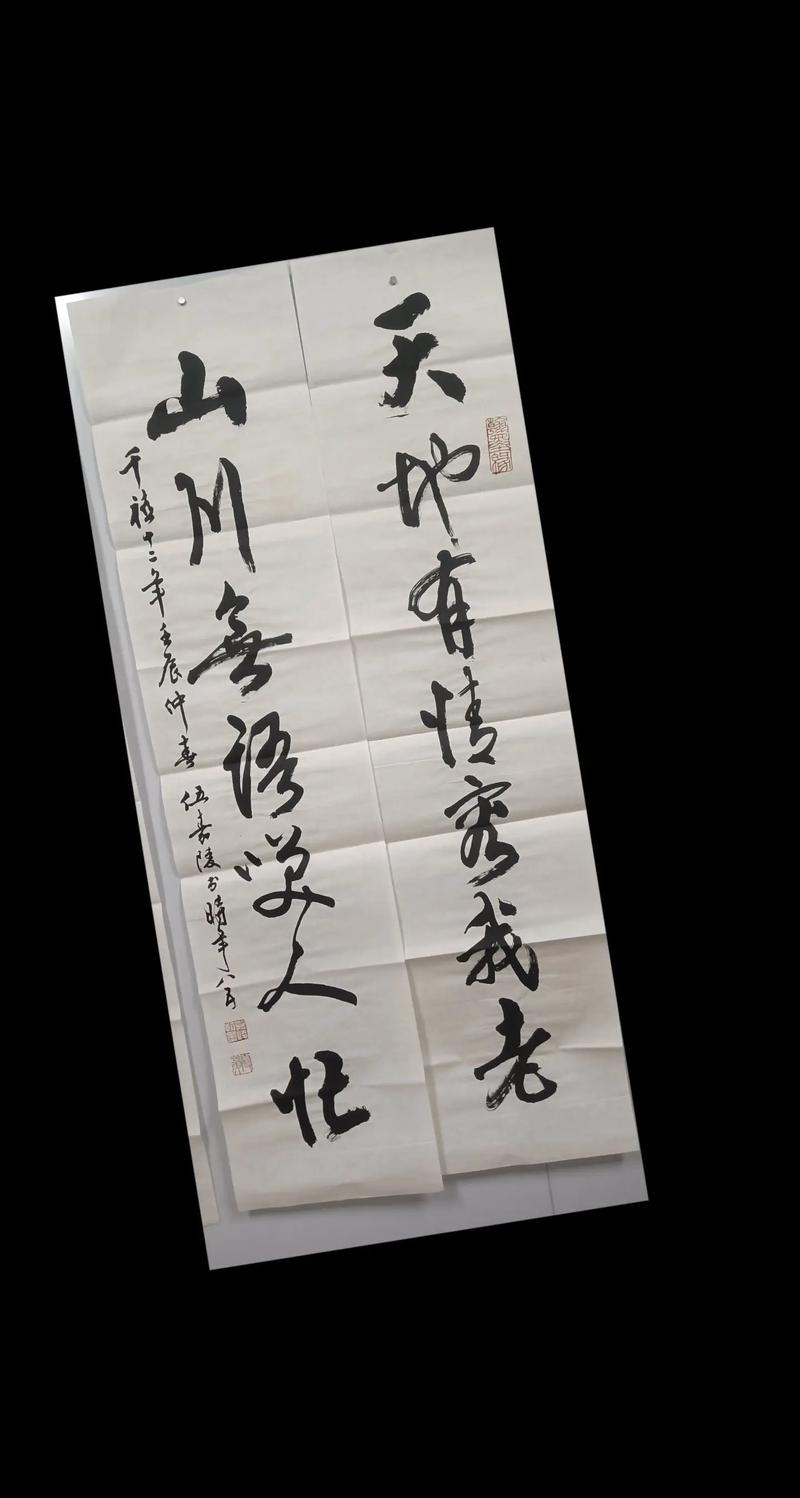 天地有情容我老
山川無語笑人忙
千禧十二年壬辰仲春 伍嘉陵书 時年八